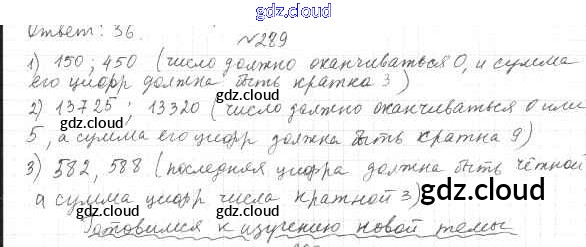 gdz.cloud
Ответ: 36.
№289
gdz.cloud
1) 150; 450 (число должно оканчиваться 0, и сумма
его цифр должна быть кратна 3)
gdz.cloud
gdz.cloud
2) 13725; 13320 (число должно оканчиваться 0 или
5, а сумма его цифр должна быть кратна 9)
3) 582, 588 (последняя цифра должна быть чётной
а сумма цифр числа кратной 3)
gdz.cloud
gdz.cloud
Готовимся к изучению новой темы